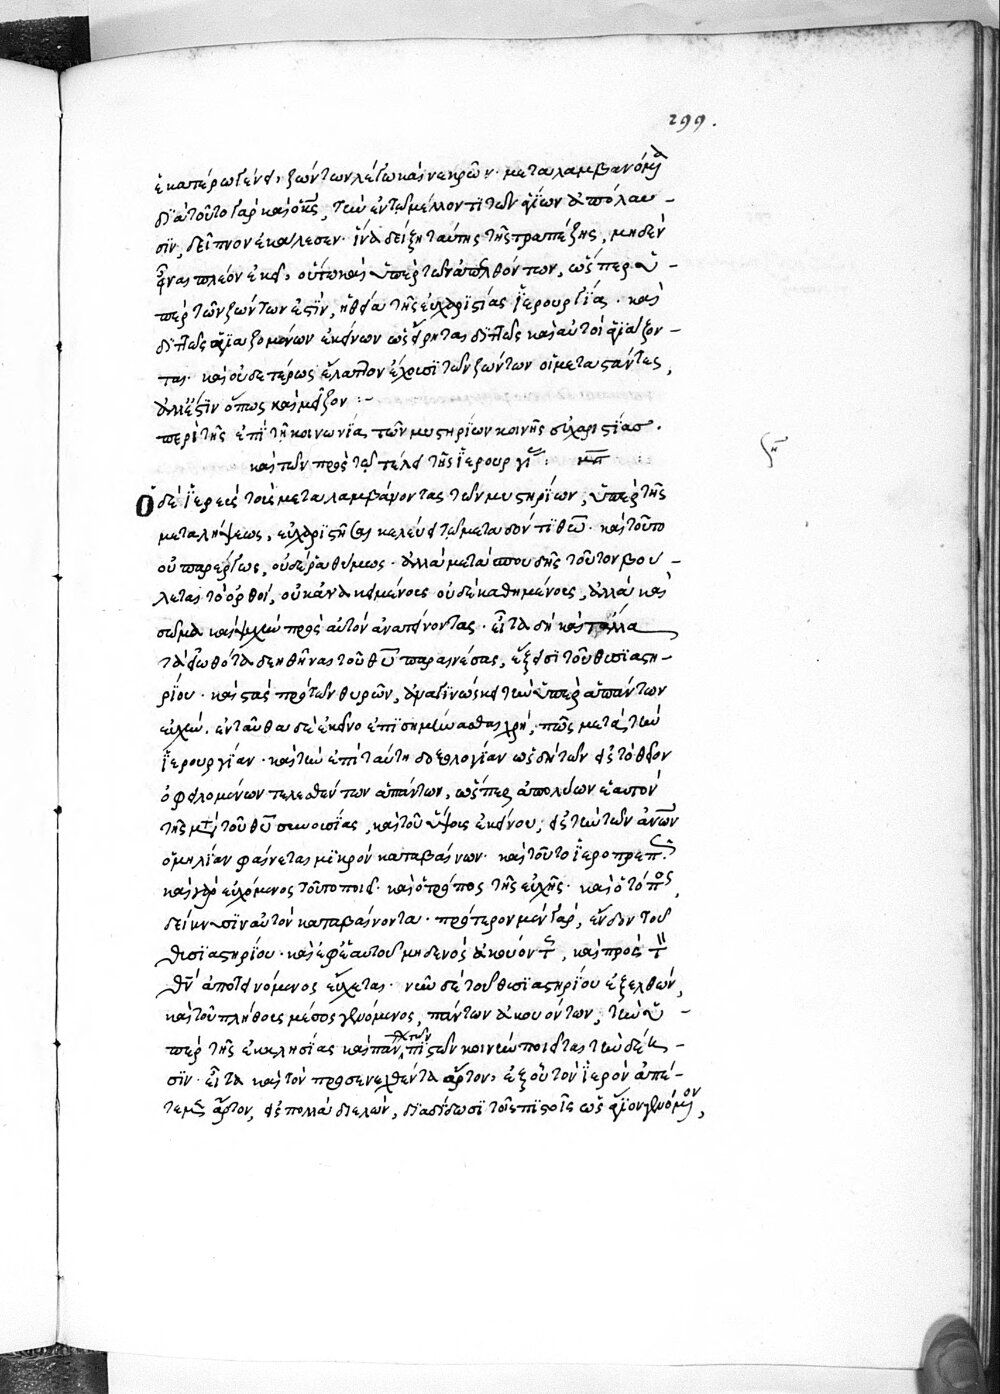 299.
ἑκατέρω γένει, ζώντων λέγω καὶ νεκρῶν· μεταλαμβανόμεθα
διὰ τοῦτο γὰρ καὶ ὁ κς, τὴν ἐν τῷ μέλλοντι τῶν ἁγίων ἀπόλαυ-
σιν, δεῖπνον ἐκάλεσεν· ἵνα δείξῃ ταύτης τῆς τραπέζης, μηδὲν
εἶναι πλέον ἐκεῖ, οὕτω καὶ ὑπὲρ τῶν ἀπελθόντων, ὥσπερ ὑ-
πὲρ τῶν ζώντων ἐστὶν, ἡ θεία τῆς εὐχαριστίας ἱερουργία· καὶ
διπλῶς ἁγιαζομένων ἐκείνων ὡς εἴρηται διπλῶς καὶ αὐτοὶ ἁγιάζον-
ται· καὶ οὐδετέρως ἔλαττον ἔχουσι τῶν ζώντων οἱ μεταστάντες,
ἀλλ' ἔστιν ὅπως καὶ μεῖζον :-
περὶ τῆς ἐπὶ τῇ κοινωνίᾳ τῶν μυστηρίων κοινῆς εὐχαριστίας.
καὶ τῶν πρὸς τῷ τέλει τῆς ἱερουργί
Ὁ δὲ ἱερεὺς τοὺς μεταλαμβάνοντας τῶν μυστηρίων, ὑπὲρ τῆς
μεταλήψεως, εὐχαριστῆσαι κελεύει τῷ μεταδόντι θω· καὶ τοῦτο
οὐ παρέργως, οὐδὲ ῥαθύμως· ἀλλὰ μετὰ σπουδῆς τοῦτον βού-
λεται τὸ ὀρθοί, οὐκ ἀνακειμένους οὐδὲ καθημένους, ἀλλὰ καὶ
σῶμα καὶ ψυχὴν πρὸς αὐτὸν ἀνατείνοντας· εἶτα δὴ καὶ τἄλλα
τὰ εἰωθότα δεηθῆναι τοῦ θυ παραινέσας, ἔξεισι τοῦ θυσιαστη-
ρίου· καὶ στὰς πρὸ τῶν θυρῶν, ἀναγινώσκει τὴν ὑπὲρ ἁπάντων
εὐχήν. ἐνταῦθα δὲ ἐκεῖνο ἐπισημήνασθαι χρή, πῶς μετὰ τὴν
ἱερουργίαν· καὶ τὴν ἐπὶ ταύτῃ δοξολογίαν ὡς δὴ τῶν εἰς τὸ θεῖον
ὀφειλομένων τελεσθέντων ἁπάντων, ὥσπερ ἀπολύων ἑαυτὸν
τῆς μετὰ τοῦ θυ συνουσίας, καὶ τοῦ ὕψους ἐκείνου, εἰς τὴν τῶν ανων
ὁμιλίαν φαίνεται μικρὸν καταβαίνων· καὶ τοῦτο ἱεροπρεπῶς
καὶ γὰρ εὐχόμενος τοῦτο ποιεῖ· καὶ ὁ τρόπος τῆς εὐχῆς· καὶ ὁ τόπος,
δείκνυσιν αὐτὸν καταβαίνοντα· πρότερον μὲν γὰρ, ἔνδον τοῦ
θυσιαστηρίου· καὶ ἐφ' ἑαυτοῦ μηδενὸς ἀκούοντος, καὶ πρὸς τὸν
θν ἀποτεινόμενος εὔχεται· νῦν δὲ τοῦ θυσιαστηρίου ἐξελθών,
καὶ τοῦ πλήθους μέσος γενόμενος, πάντων ἀκουόντων, τὴν ὑ-
πὲρ τῆς ἐκκλησίας καὶ παντὸς τῶν πιστῶν κοινὴν ποιεῖται τὴν δέη-
σιν· εἶτα καὶ τὸν προσενεχθέντα ἄρτον, ἐξ οὗ τὸν ἱερὸν ἀπέ-
τεμεν ἄρτον, εἰς πολλὰ διελών, διαδίδωσι τοῖς πιστοῖς ὡς ἅγιον γενόμενον,